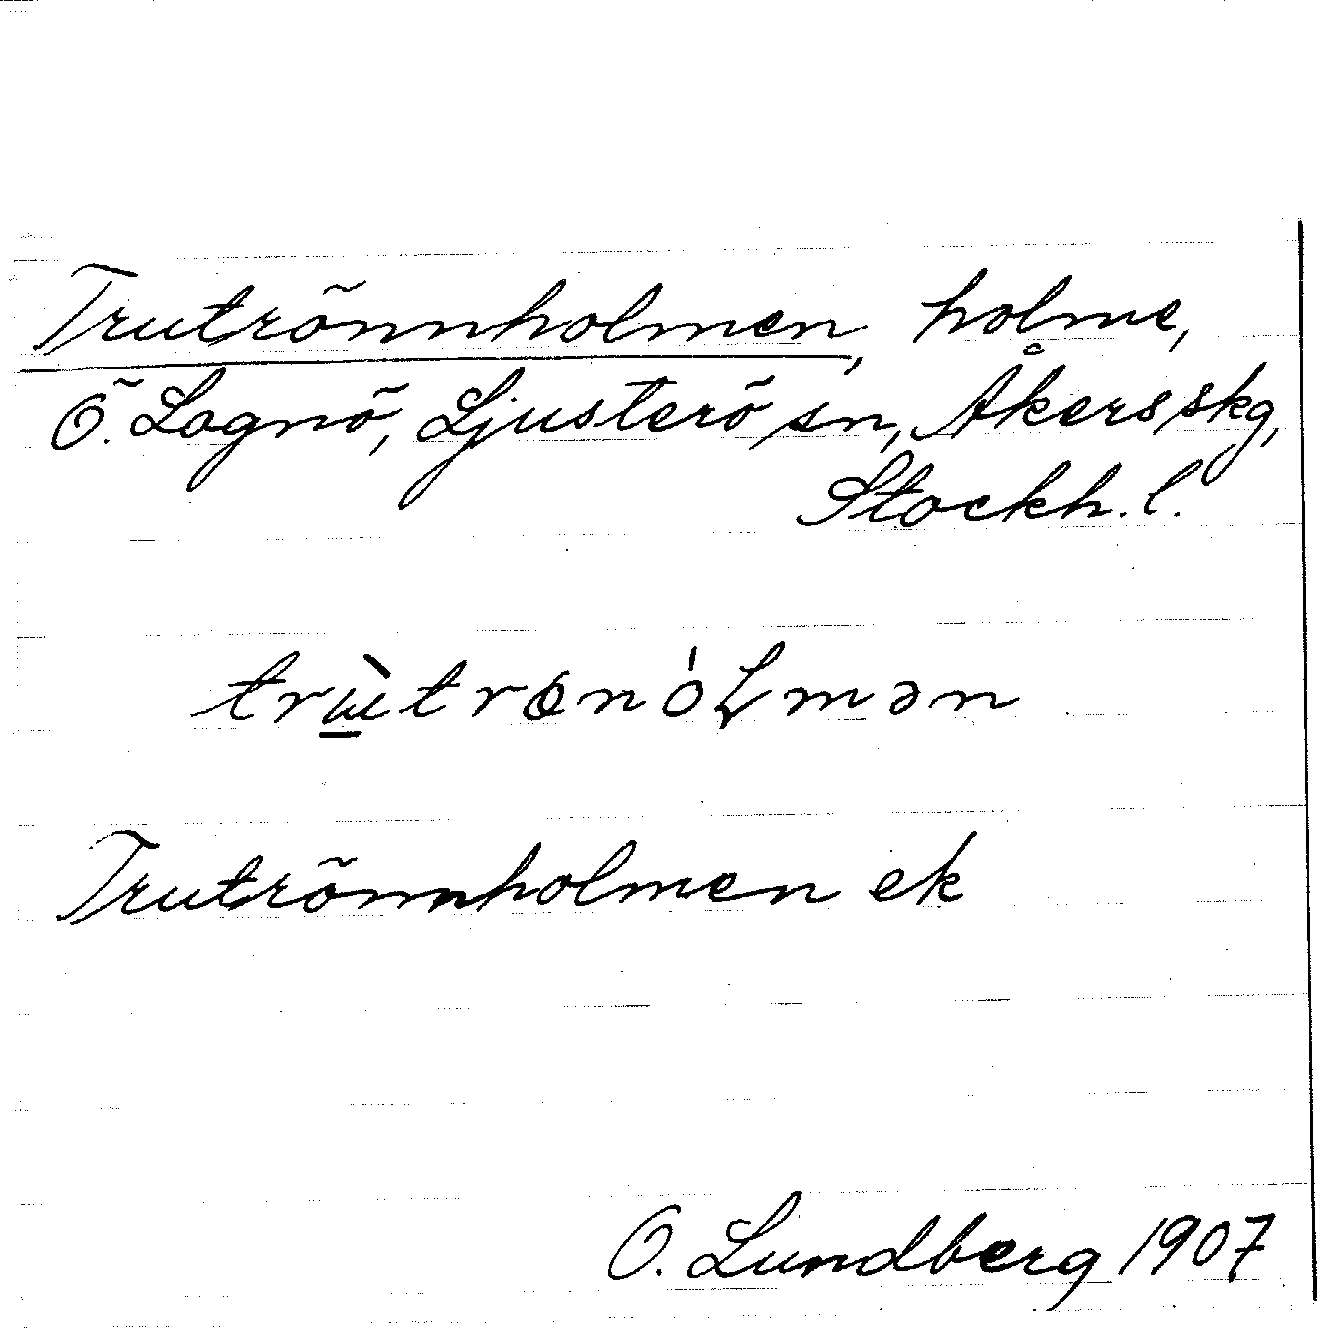 Trutrönnholmen, holme,
Ö. Lagnö, Ljusterö sn, Åkers skg,
Stockh. l.
trɯ̲̀trɵnóɫmən
Trutrönnholmen ek
O. Lundberg 1907